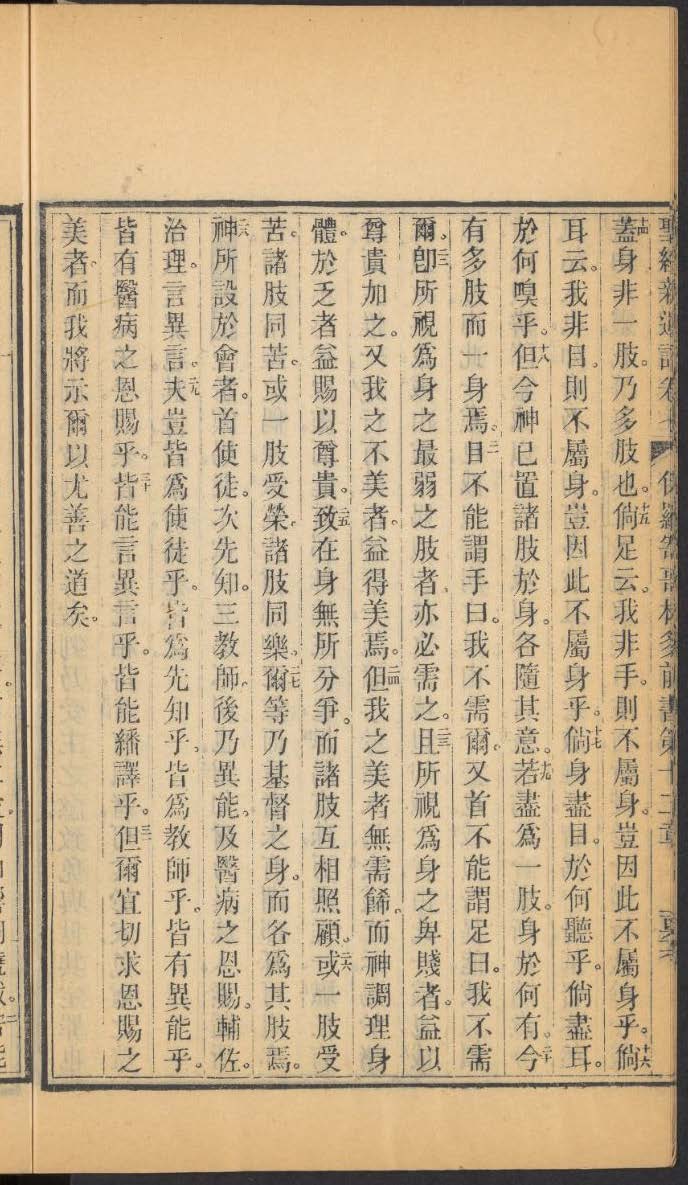 蓋身非一肢。乃多肢也。十五倘足云。我非手。則不屬身。豈因此不屬身乎。十六倘
耳云。我非目。則不屬身。豈因此不屬身乎。十七倘身盡目。於何聽乎。倘盡耳。
於何嗅乎。十八但今神已置諸肢於身。各隨其意。十九若盡爲一肢。身於何有。二十今
有多肢而一身焉。目不能謂手曰。我不需爾。又首不能謂足曰。我不需
爾。卽所視爲身之最弱之肢者。亦必需之。二三且所視爲身之卑賤者。益以
尊貴加之。又我之不美者。益得美焉。二四但我之美者無需餙。而神調理身
體。於乏者益賜以尊貴。二五致在身無所分爭。而諸肢互相照顧。二六或一肢受
苦。諸肢同苦。或一肢受榮。諸肢同樂。二七爾等乃基督之身。而各爲其肢焉。
神所設於會者。首使徒。次先知。三教師。後乃異能。及醫病之恩賜。輔佐。
治理。言異言。二九夫豈皆爲使徒乎。皆爲先知乎。皆爲教師乎。皆有異能乎。
皆有醫病之恩賜乎。三十皆能言異言乎。皆能繙譯乎。三一但爾宜切求恩賜之
美者。而我將示爾以尤善之道矣。